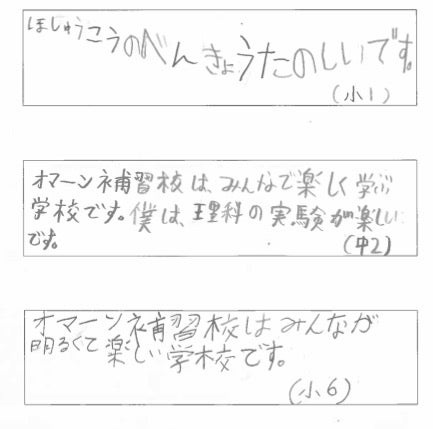 ほしゅうこうのべんきょうたのしいです。
(小1)
オマーン補習校は、みんなで楽しく学ぶ
学校です。僕は、理科の実験が楽しい
です。
(中2)
オマーン補習校はみんなが
明るくて楽しい学校です。
(小6)